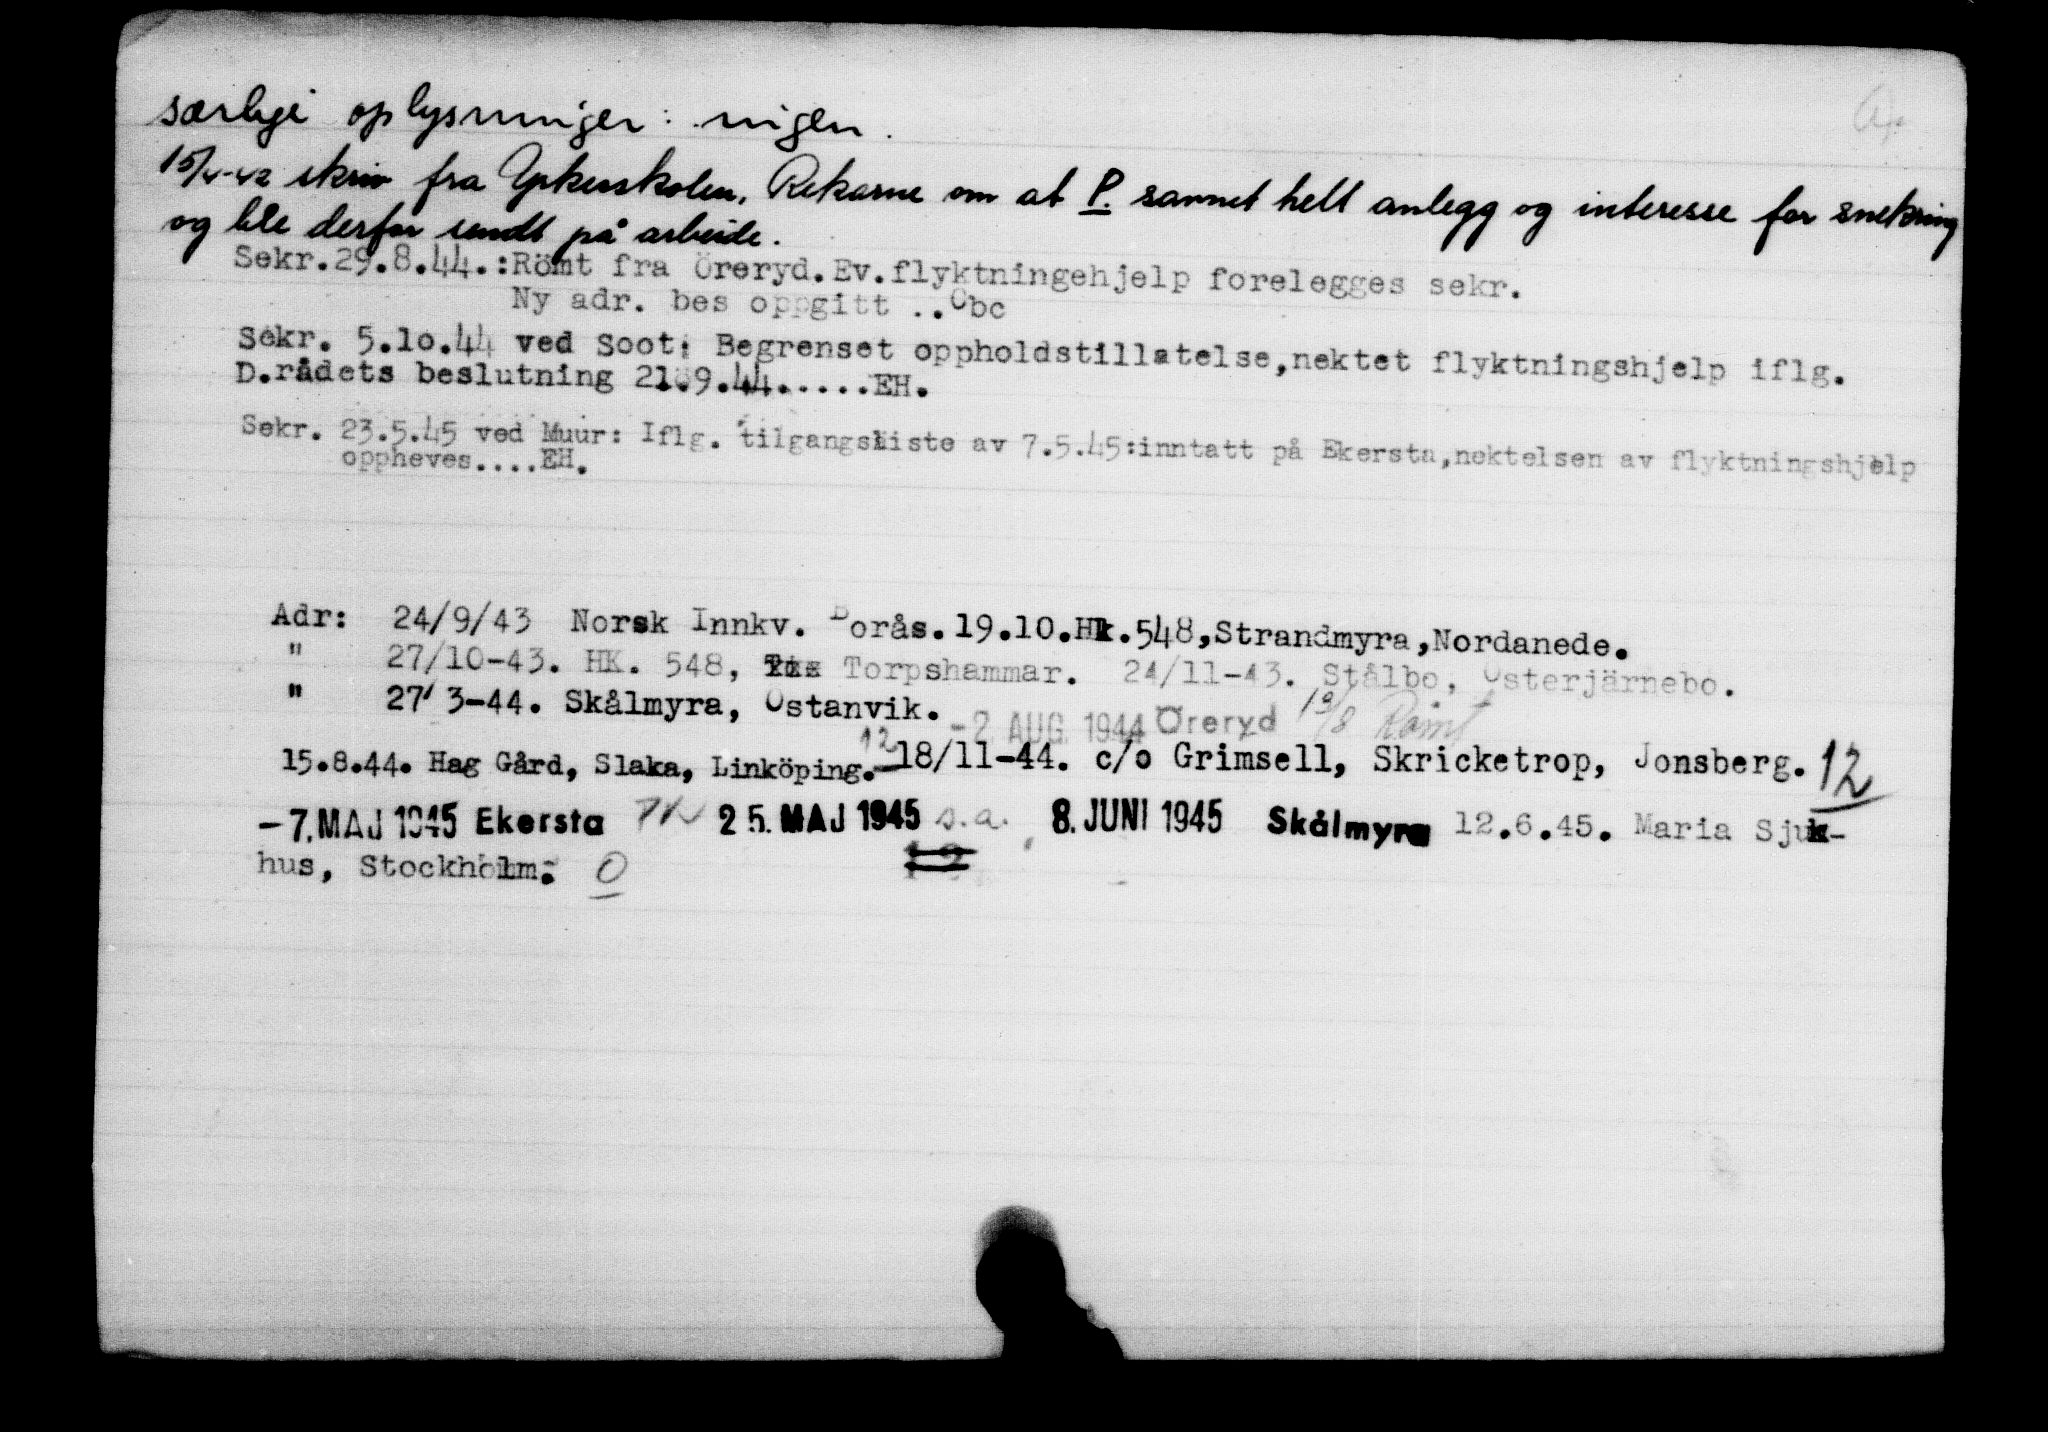 særlige oplysninger: ingen.
15/4-42 skriv fra Yrkesskolen, Rekarne om at P. savnet helt anlegg og interesse for snekring
og ble derfor sendt på arbeide.
Sekr.29.8.44.:Römt fra Öreryd.Ev.flyktningehjelp forelegges sekr.
Ny adr. bes oppgitt ..Obc
Sekr. 5.10.44 ved Soot: Begrenset oppholdstillatelse,nektet flyktningshjelp iflg.
D.rådets beslutning 21.9.44.....EH.
Sekr. 23.5.45 ved Muur: Iflg. tilgangsliste av 7.5.45:inntatt på Ekersta,nektelsen av flyktningshjelp
oppheves....EH.
Adr: 24/9/43 Norsk Innkv. Borås.19.10.Hk.548,Strandmyra,Nordanede.
" 27/10-43. HK. 548, Torpshammar. 24/11-43. Stålbo, Österjärnebo.
" 27/3-44. Skålmyra, Östanvik. -2 AUG. 1944 Öreryd 13/8 Rømt
15.8.44. Hag Gård, Slaka, Linköping.- 12 18/11-44. c/o Grimsell, Skricketrop, Jonsberg. 12
-7. MAJ 1945 Ekersta 25. MAJ 1945 s.a. 8. JUNI 1945 Skålmyra 12.6.45. Maria Sjuk-
hus, Stockholm. O